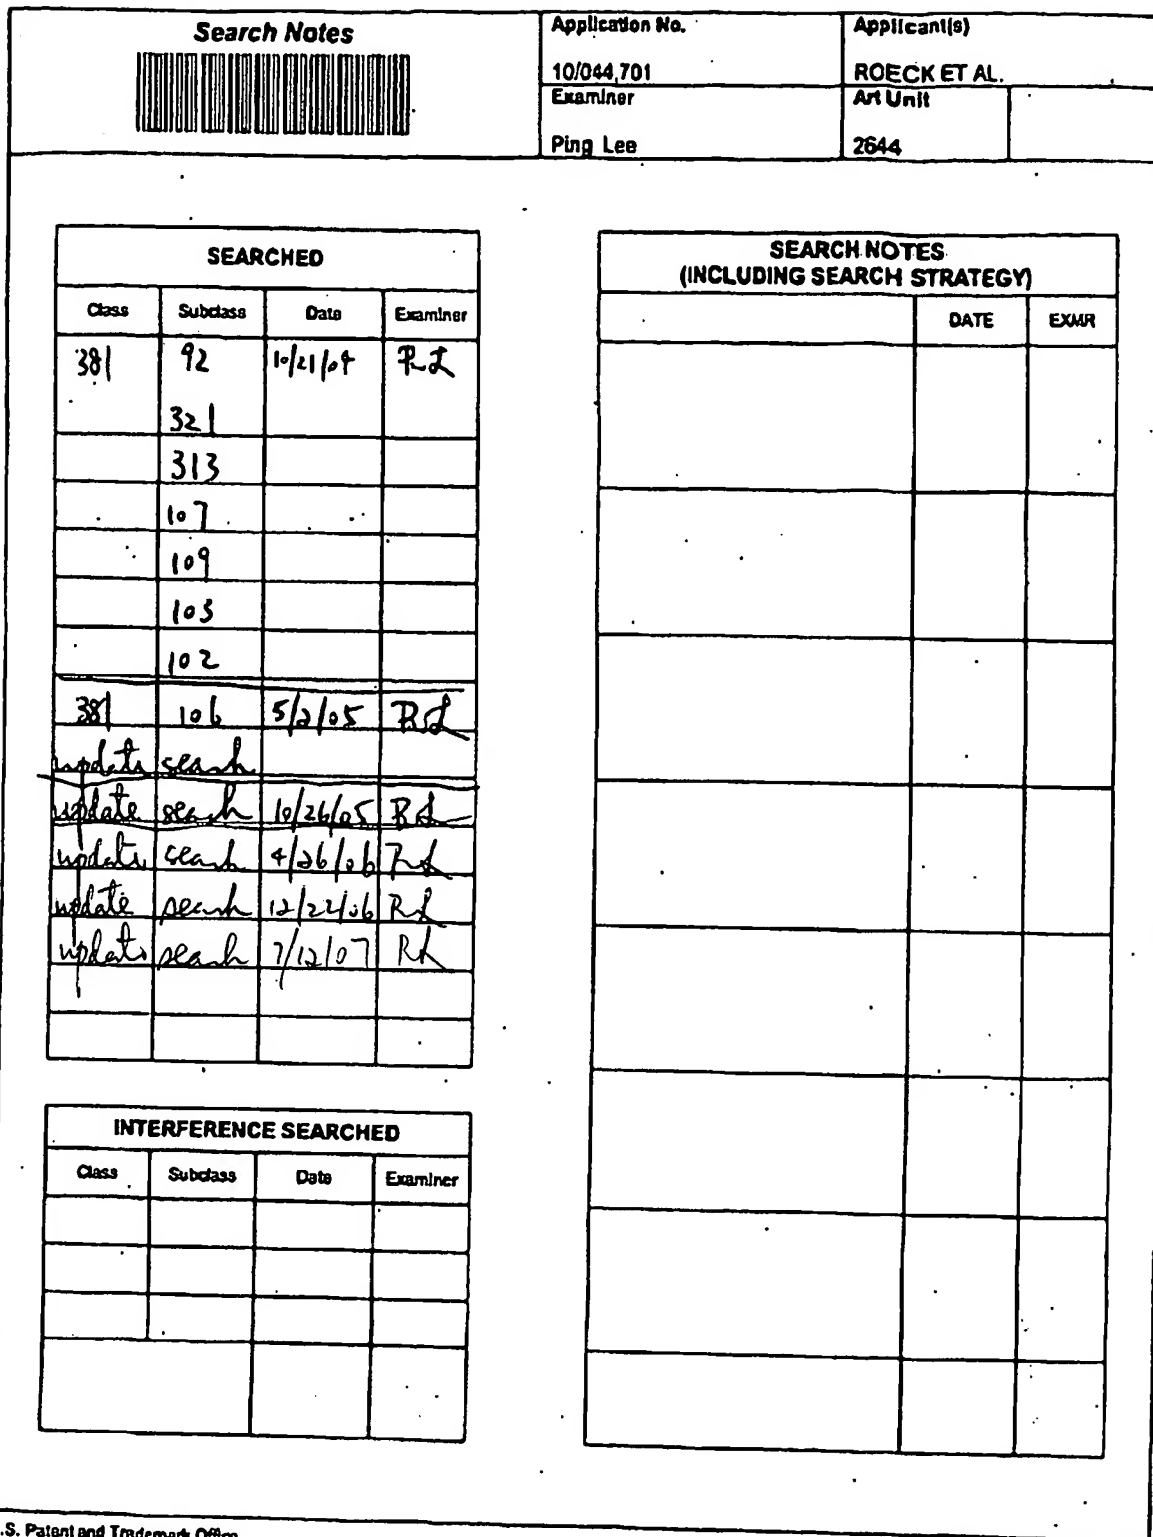 Search Notes
Application No.
Applicant(s)
10/044,701
ROECK ET AL.
Examiner
Art Unit
Ping Lee
2644
SEARCHED
Class Subclass Date Examiner
381 92 10/21/04 PL
321
313
107
109
103
102
381 106 5/2/05 PL
update search
update search 10/26/05 PL
update search 4/26/06 PL
update search 12/22/06 PL
update search 7/12/07 PL
INTERFERENCE SEARCHED
Class Subclass Date Examiner
SEARCH NOTES
(INCLUDING SEARCH STRATEGY)
DATE EXMR
.S. Patent and Trademark Office